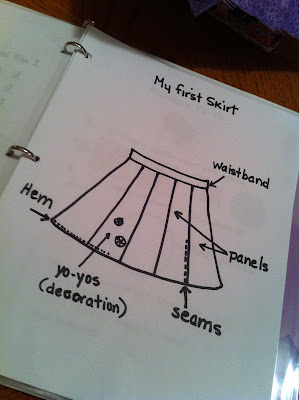 My first Skirt
Waistband
Hem
panels
yo-yos
(decoration)
seams